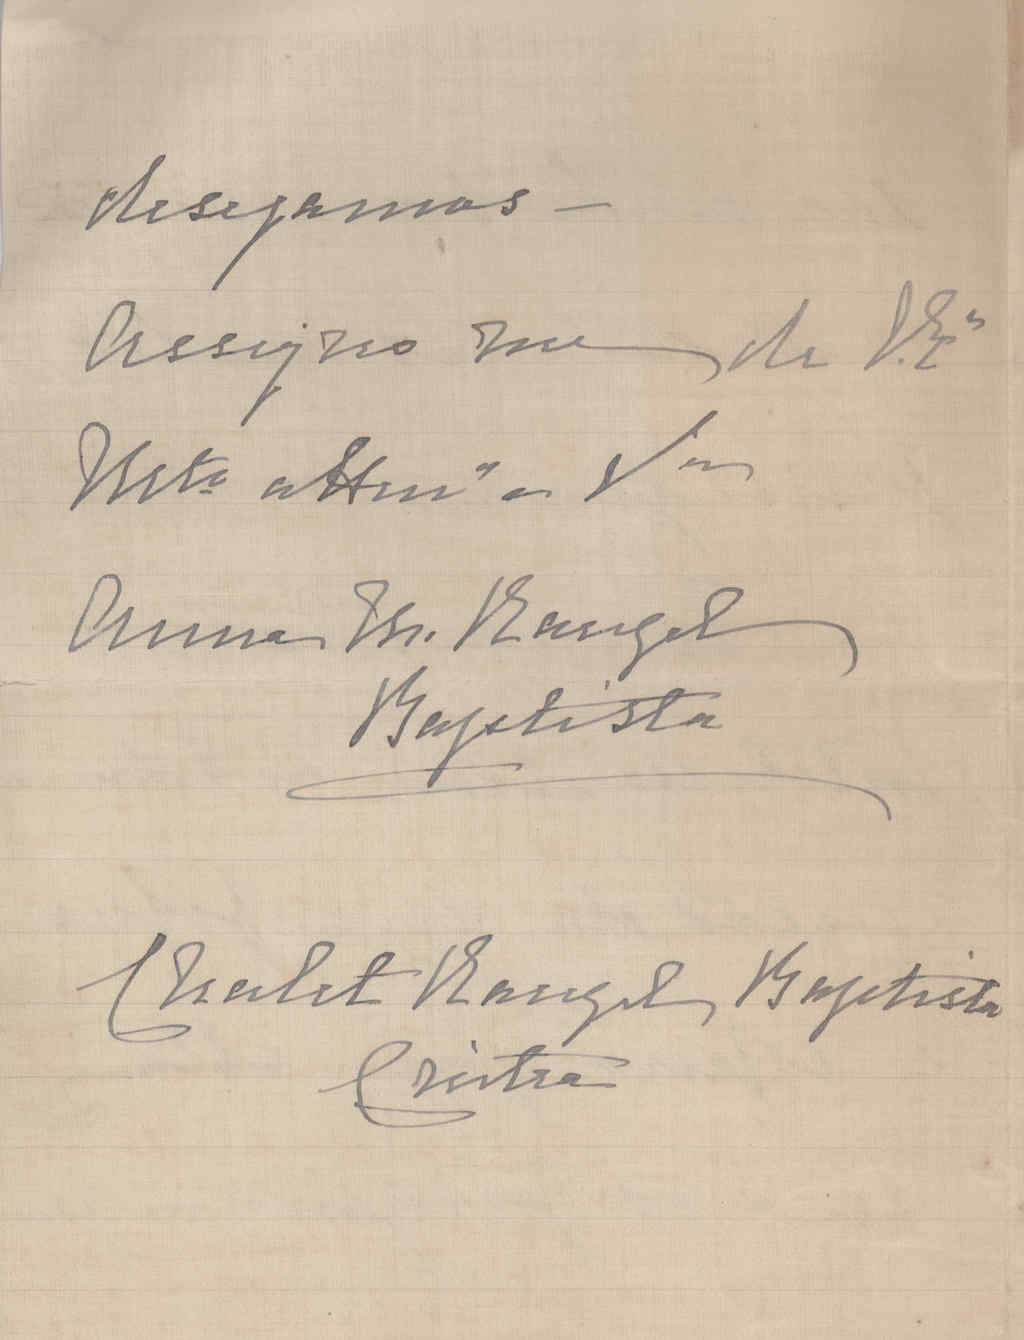 desejamos —
Assigno me de V. Exª
Mtº attenª e Vra
Anna M. Rangel
Baptista
Chalet Rangel Baptista
Cintra